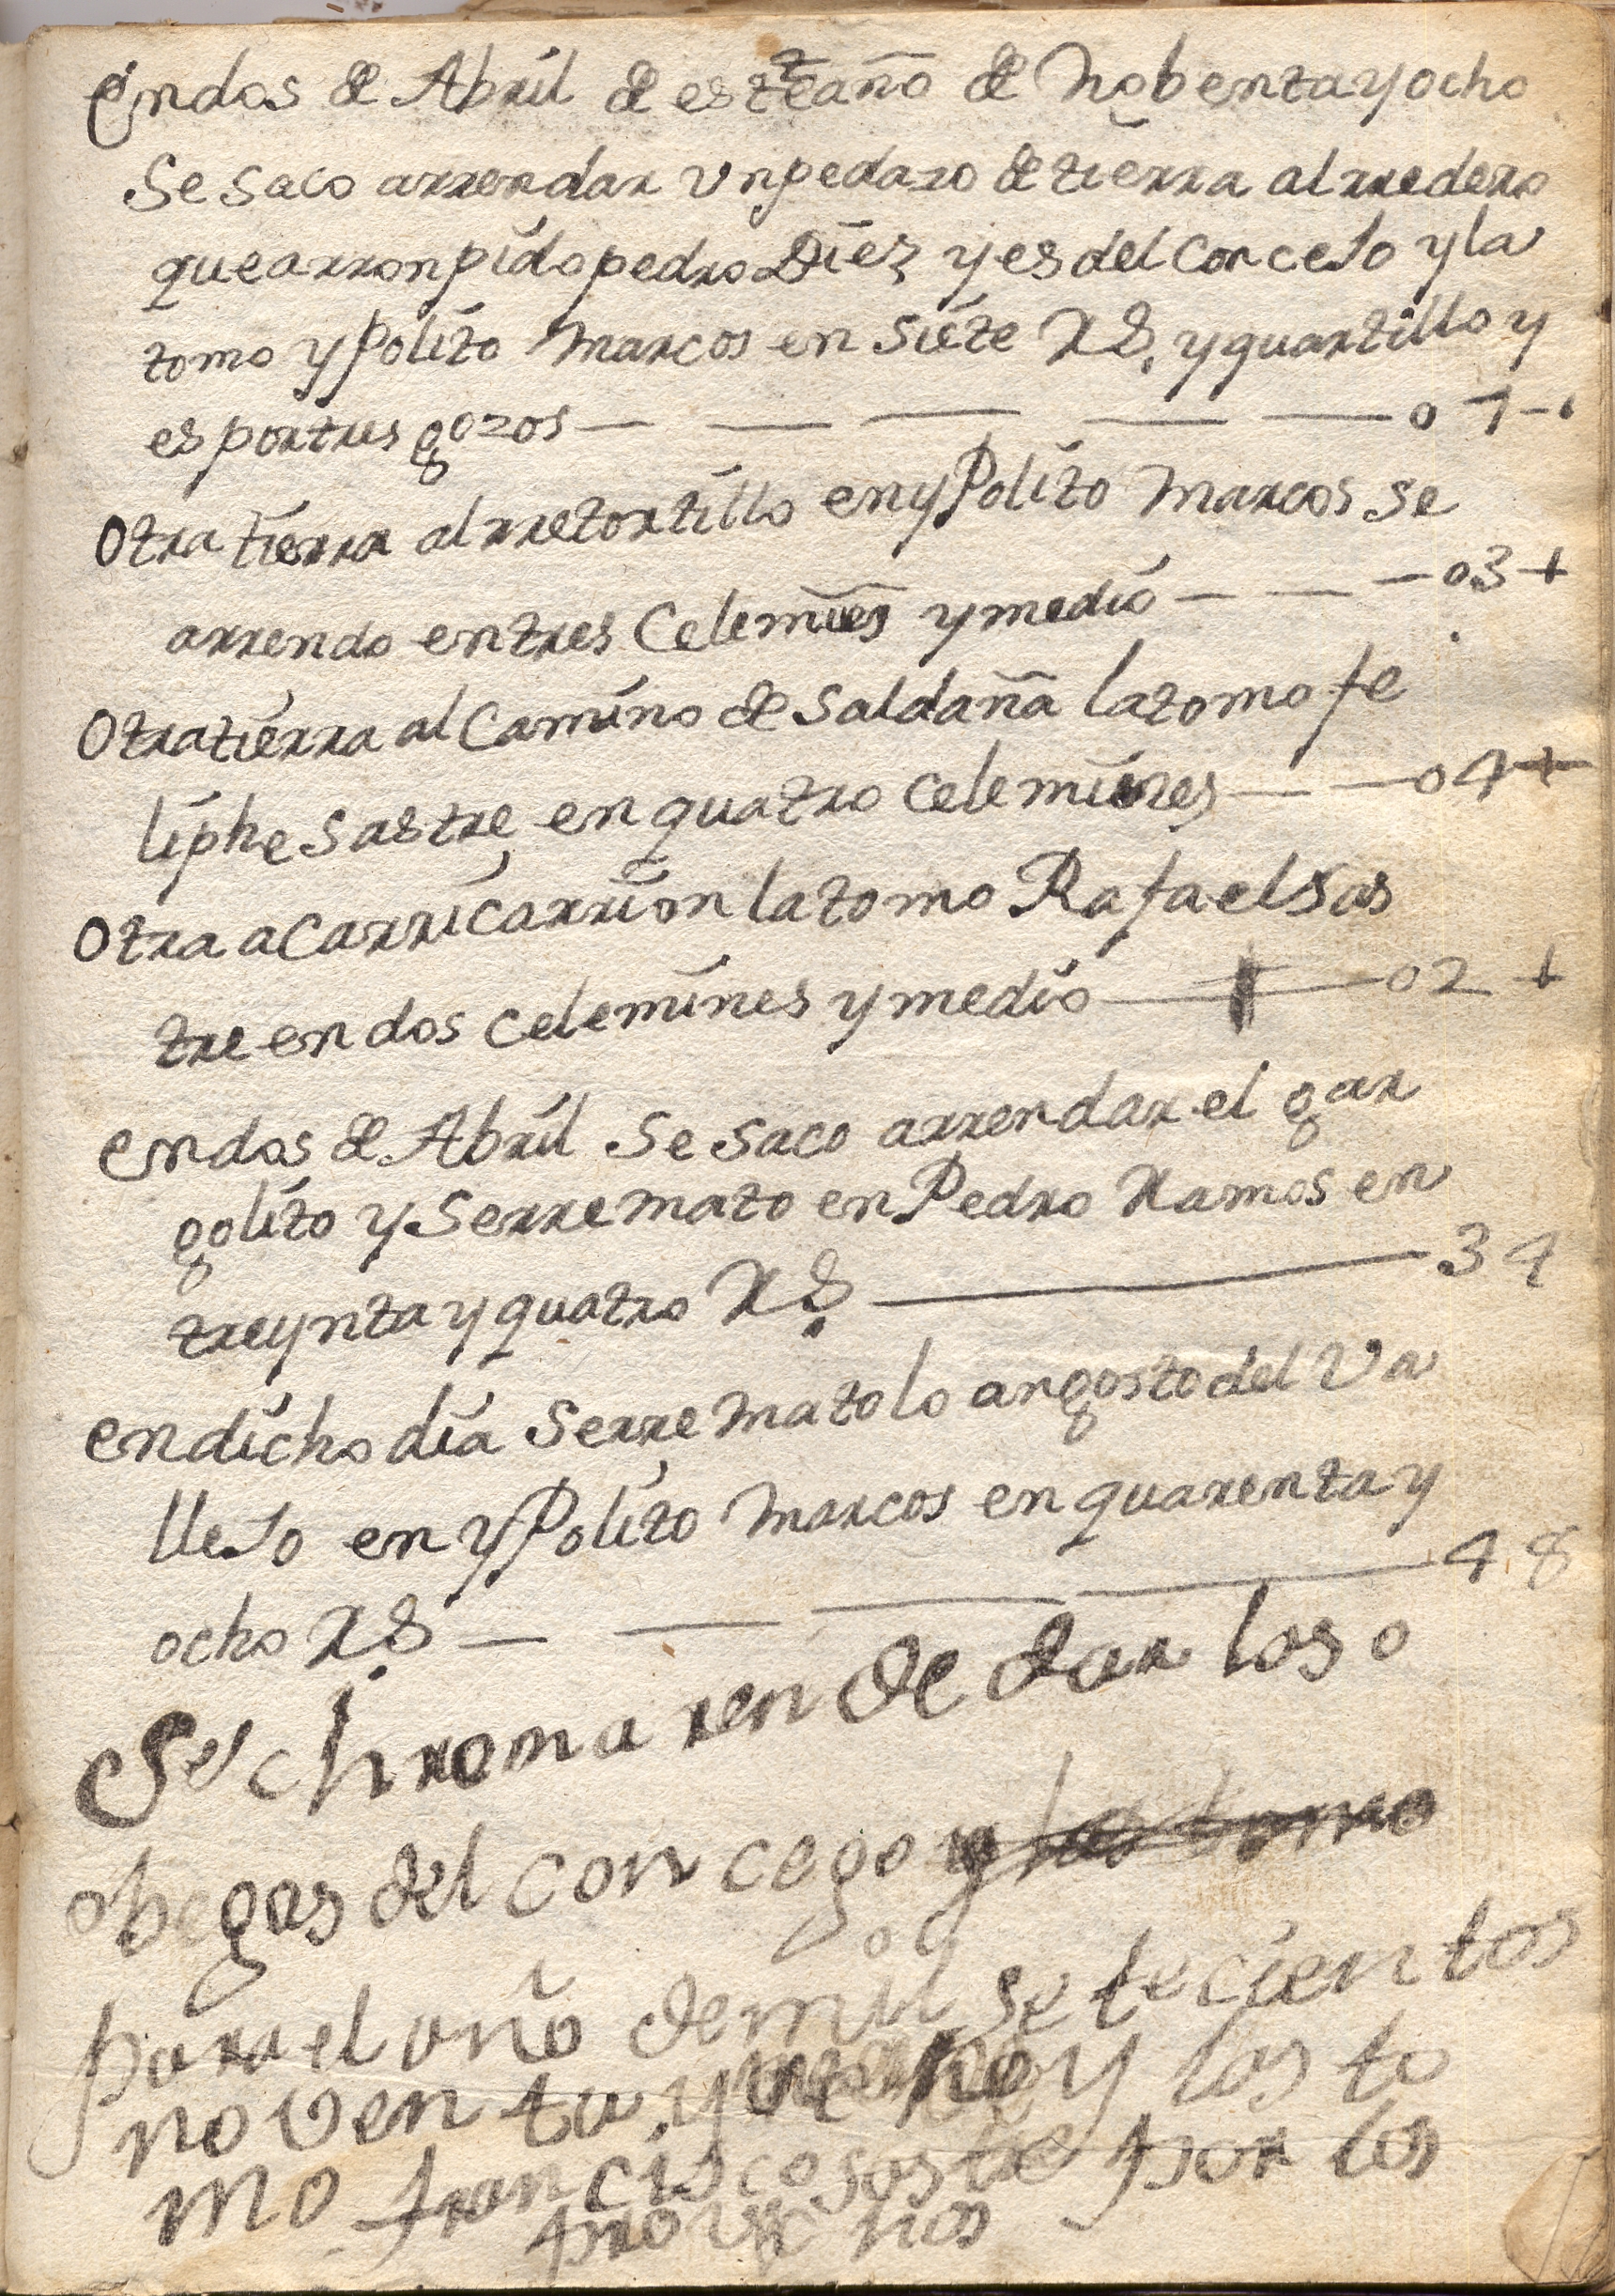 Endos de Abril de este año de nobenta y ocho
Se saco arrendar Vn pedazo de tierra al rredero
que arronpido pedro Diez y es del ConceJo y la
tomo yPolito Marcos en siete Rs. y quartillo y
es por tres gozos — — — — — 07-
Otra tierra al rretortillo en yPolito Marcos se
arrendo en tres Celemines y medio — — — 03 +
Otra tierra al Camino de Saldaña la tomo fe
liphe Sastre en quatro Celemines — — 04 +
Otra a Carricarrion la tomo Rafael Sas
tre en dos celemines y medio — 02 +
en dos de Abril se saco arrendar el gar
golito y Serremato en Pedro Ramos en
treynta y quatro Rs — 34
en dicho dia Serremato lo angosto del Va
lleJo en yPolito Marcos en quarenta y
ocho Rs — — — — 48
Se
de dar los o
begas del concego
para el año de mil setecientos
noventa y y las to
mo francisco sastre por los